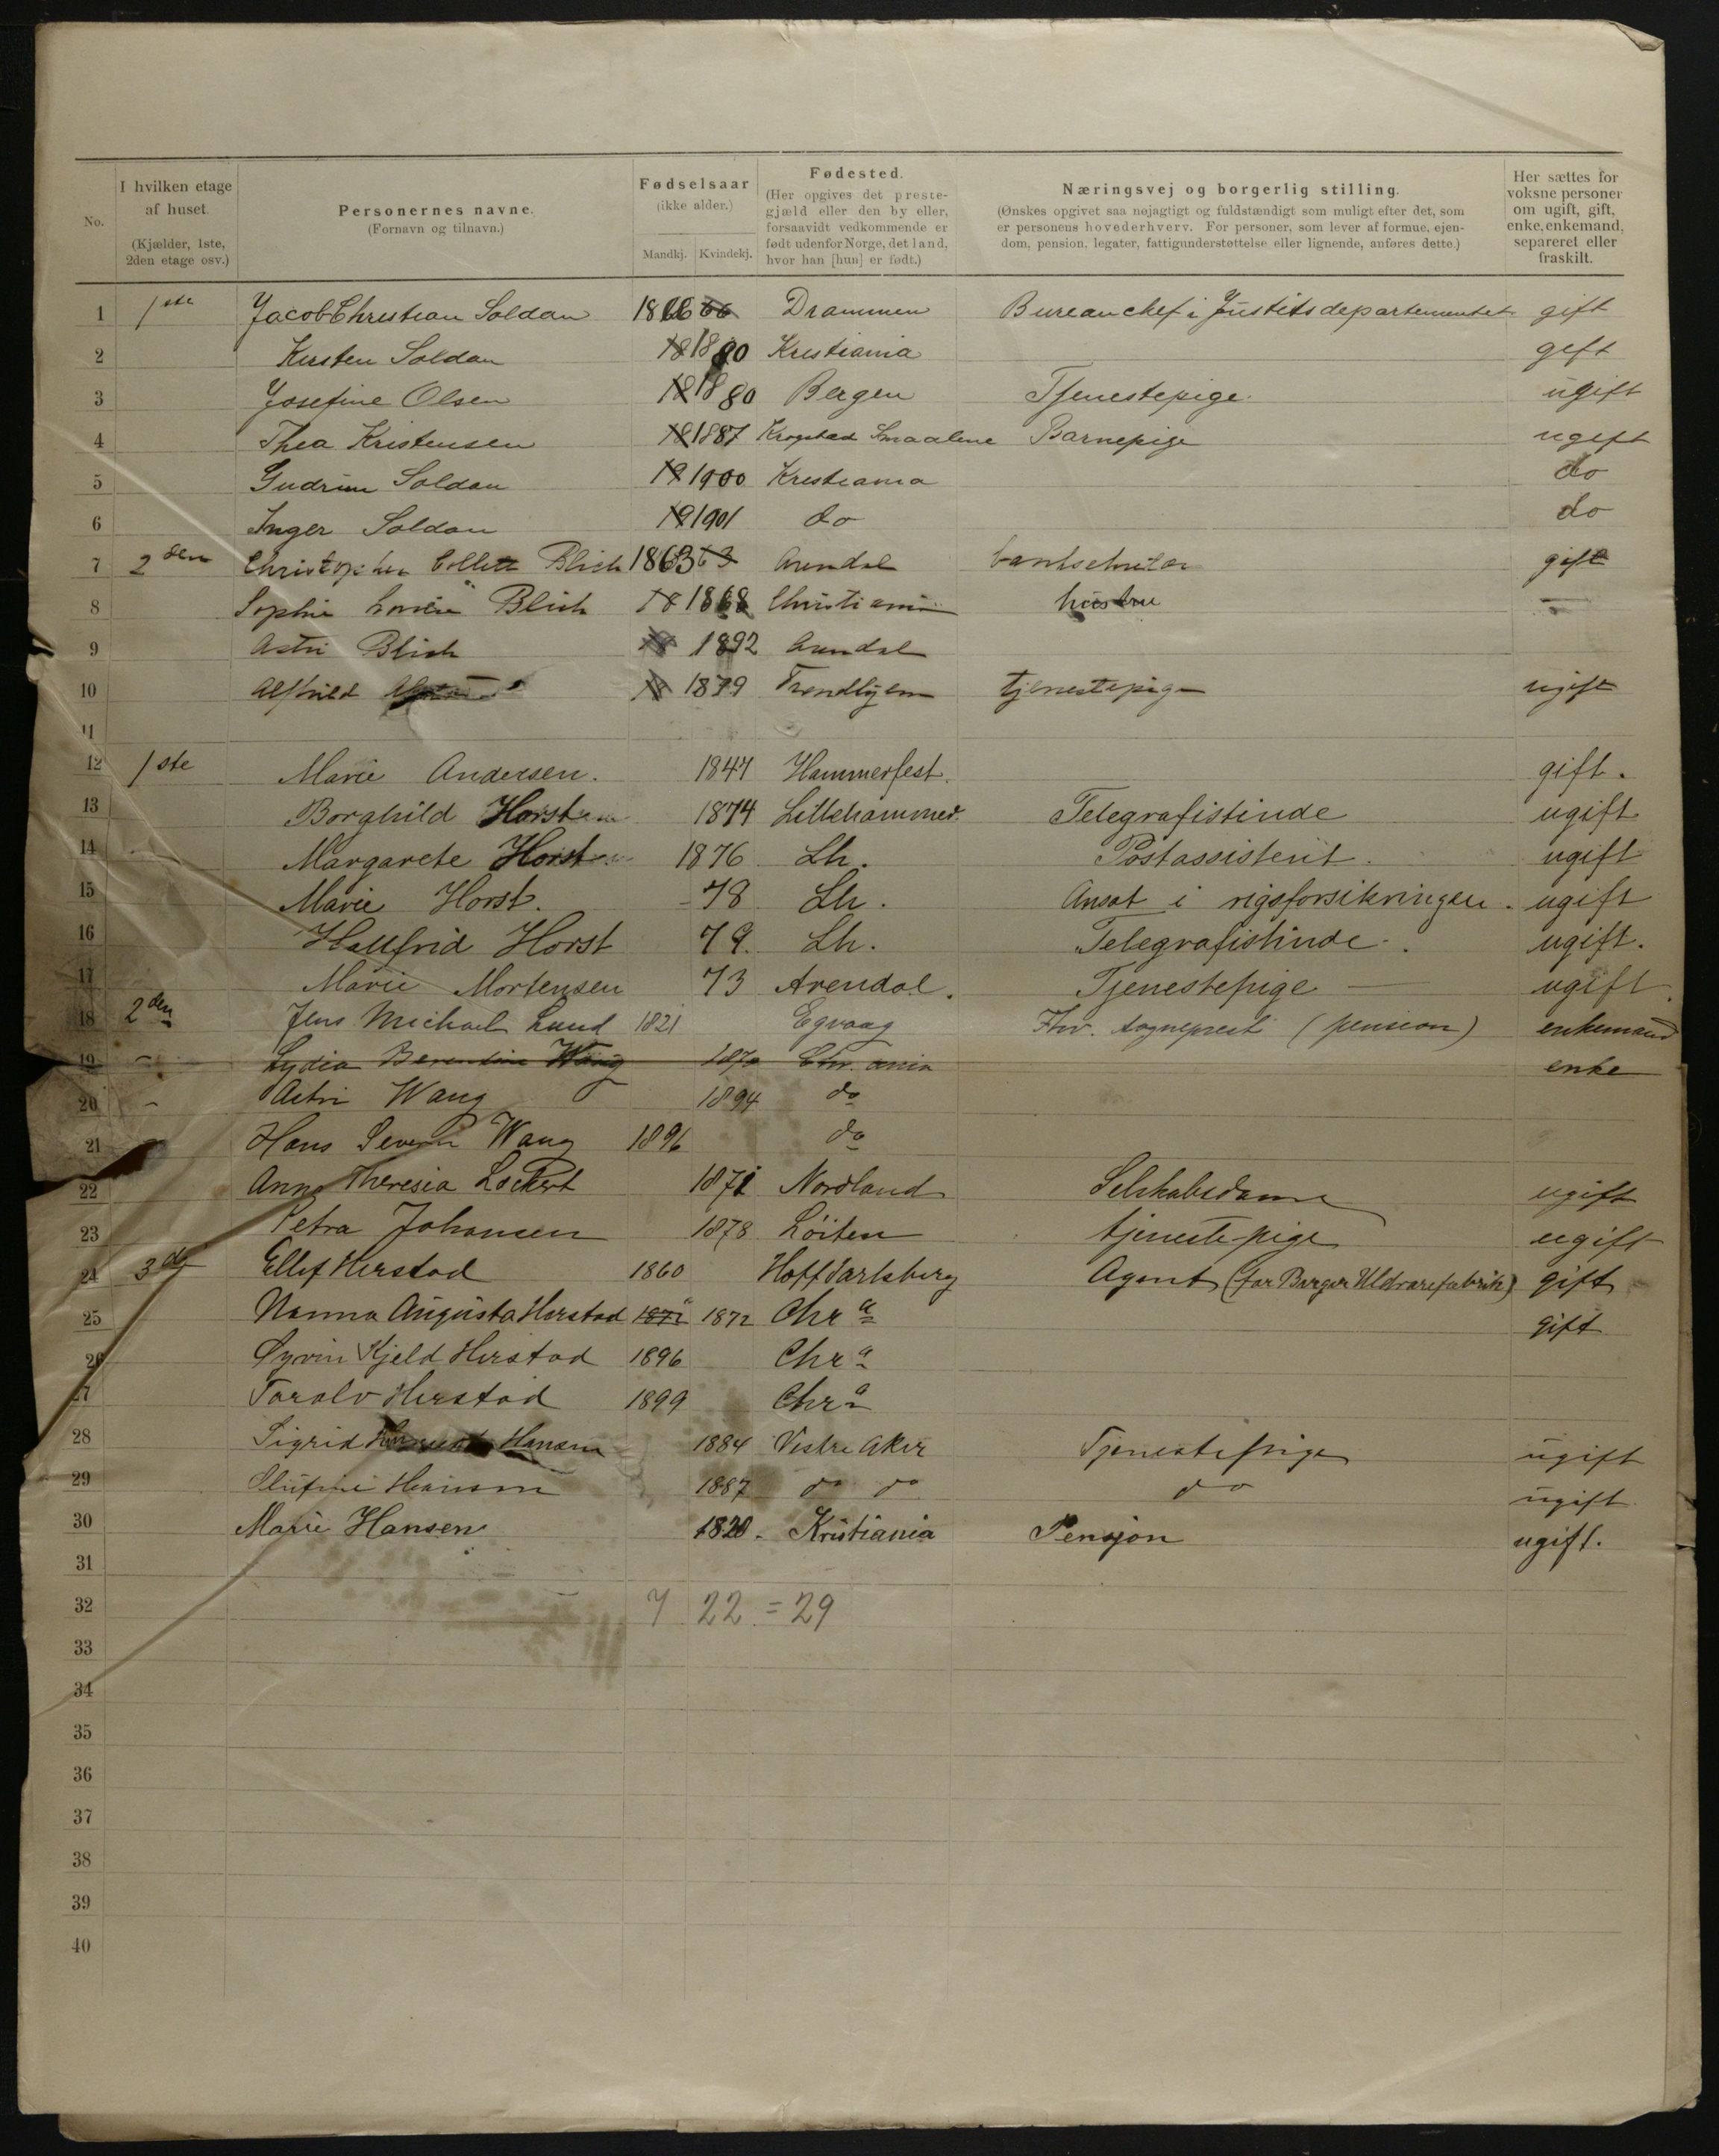 No. I hvilken etage af huset. (Kjælder, 1ste, 2den etage osv.) Personernes navne. (Fornavn og tilnavn.) Fødselsaar (ikke alder.) Mandkj. Kvindekj. Fødested. (Her opgives det prestegjæld eller den by eller, forsaavidt vedkommende er født udenfor Norge, det land, hvor han [hun] er født.) Næringsvej og borgerlig stilling. (Ønskes opgivet saa nøjagtigt og fuldstændigt som muligt efter det, som er personens hovederhverv. For personer, som lever af formue, ejendom, pension, legater, fattigunderstøttelse eller lignende, anføres dette.) Her sættes for voksne personer om ugift, gift, enke, enkemand, separeret eller fraskilt.
1 1ste Jacob Christian Soldan 1866 66 Drammen Bureauchef i Justitsdepartementet gift
2 Kirsten Soldan 18 1880 Kristiania gift
3 Josefine Olsen 18 1880 Bergen Tjenestepige. ugift
4 Thea Kristensen 18 1887 Krogstad Smaalene Barnepige ugift
5 Gudrun Soldan 19 1900 Kristiania do
6 Inger Soldan 19 1901 do do
7 2den Christopher Collett Blich 1863 63 Arendal gift
8 Sophie Blich 18 1868 Christiania hustru —
9 Astri Blich 18 1892 Arendal
10 Alfhild 18 1879 Trondhjem tjenestepige ugift
11
12 1ste Marie Andersen. 1847 Hammerfest. gift.
13 Borghild Horst 1874 Lillehammer. Telegrafistinde ugift
14 Margarete Horst 1876 Lh. Postassistent. ugift
15 Marie Horst. - 78 Lh. Ansat i rigsforsikringen. ugift
16 Hallfrid Horst 79. Lh. Telegrafistinde. ugift.
17 Marie Mortensen 73 Arendal. Tjenestepige — ugift.
18 2den Jens Michael Lund 1821 Egvaag Fhv. sogneprest (pension) enkemand
19 - Lydia Berentine Wang 1870 Chr. ania enke
20 - Astri Wang 1894 do
21 - Hans Severin Wang 1896 do
22 Anna Theresia Lockert 1871 Nordland Selskabsdame ugift
23 Petra Johansen 1878 Löiten tjenestepige ugift
24 3die Ellef Herstad 1860 Hoff Jarlsberg Agent (for Berger Uldvarefabrik) gift
25 Nanna Augusta Herstad 1872 1872 Chra gift
26 Øyvin Kjeld Herstad 1896 Chra
27 Toralv Herstad 1899 Chra
28 Sigrid Hansen 1884 Vestre Aker Tjenestepige ugift
29 Olufine Hansen 1887 do do do ugift
30 Marie Hansen 1820. Kristiania Pensjon ugift.
31
32 7 22 = 29
33
34
35
36
37
38
39
40